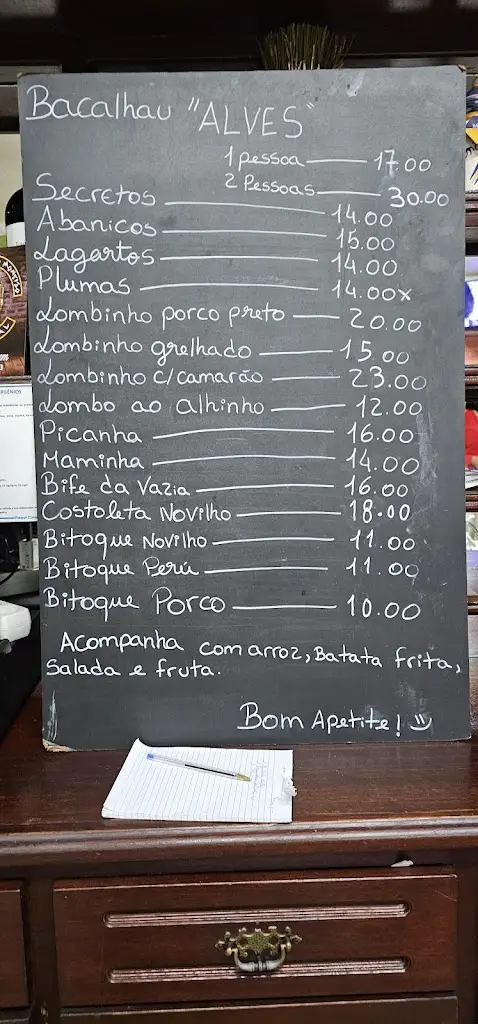 Bacalhau "ALVES"
1 pessoa 17.00
2 Pessoas 30.00
Secretos 14.00
Abanicos 15.00
Lagartos 14.00
Plumas 14.00x
Lombinho porco preto 20.00
Lombinho grelhado 15.00
Lombinho c/camarão 23.00
Lombo ao alhinho 12.00
Picanha 16.00
Maminha 14.00
Bife da Vazia 16.00
Costoleta Novilho 18.00
Bitoque Novilho 11.00
Bitoque Perú 11.00
Bitoque Porco 10.00
Acompanha com arroz, Batata frita,
salada e fruta.
Bom Apetite!